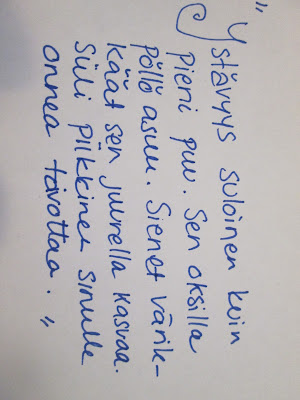 "Ystävyys suloinen kuin
pieni puu. Sen oksilla
pöllö asuu. Sienet värik-
käät sen juurella kasvaa.
Siili piikkinen sinulle
onnea toivottaa."